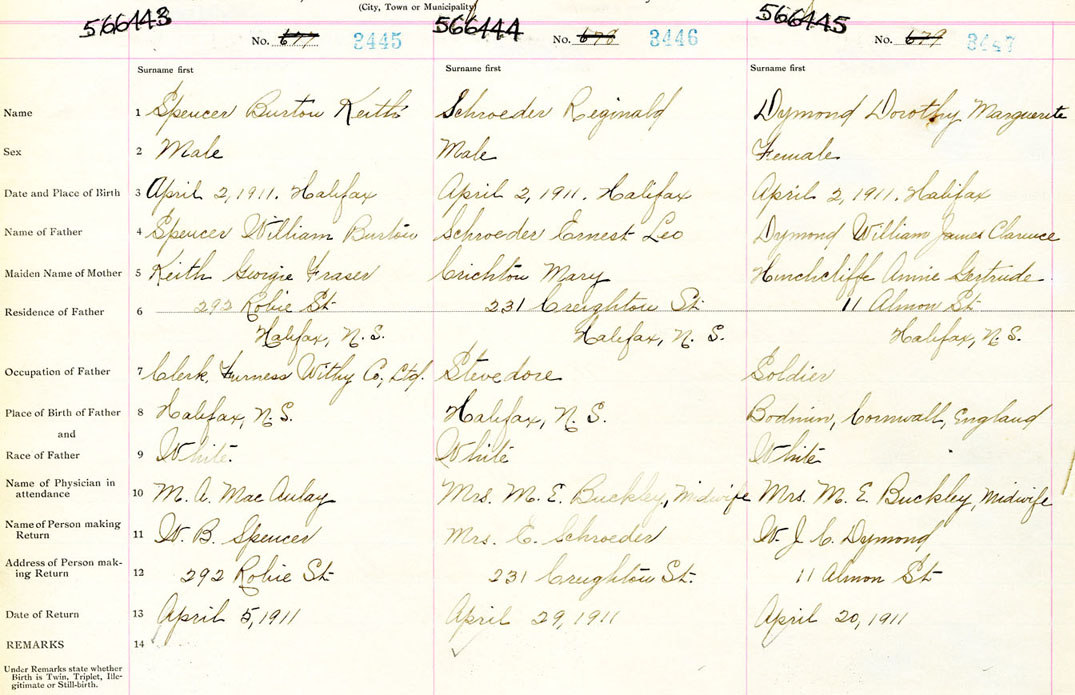 (City, Town or Municipality)
566443 566444 566445
No. 677 3445 No. 678 3446 No. 679 3447
Surname first Surname first Surname first
Name 1 Spencer Burton Keith Schroeder Reginald Dymond Dorothy Marguerite
Sex 2 Male Male Female
Date and Place of Birth 3 April 2, 1911. Halifax April 2, 1911. Halifax April 2, 1911. Halifax
Name of Father 4 Spencer William Burton Schroeder Ernest Leo Dymond William James Clarence
Maiden Name of Mother 5 Keith Georgie Fraser Crichton Mary Hinchcliffe Annie Gertrude
Residence of Father 6 292 Robie St 231 Creighton St 11 Almon St
Halifax, N.S. Halifax, N.S. Halifax, N.S.
Occupation of Father 7 Clerk, Furness Withy Co, Ltd. Stevedore Soldier
Place of Birth of Father 8 Halifax, N.S. Halifax, N.S. Bodmin, Cornwall, England
and
Race of Father 9 White. White White
Name of Physician in
attendance 10 M. A. MacAulay Mrs. M. E. Buckley, Midwife Mrs. M. E. Buckley, Midwife
Name of Person making
Return 11 W. B. Spencer Mrs. E. Schroeder W. J. C. Dymond
Address of Person mak-
ing Return 12 292 Robie St 231 Creighton St. 11 Almon St
Date of Return 13 April 5, 1911 April 29, 1911 April 20, 1911
REMARKS 14
Under Remarks state whether
Birth is Twin, Triplet, Ille-
gitimate or Still-birth.